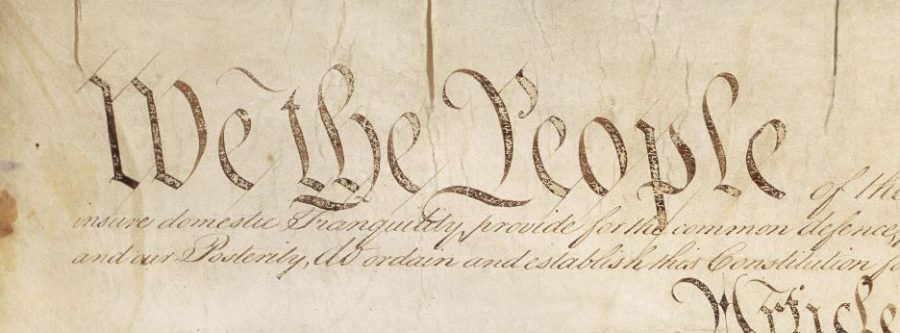 We the People of the
insure domestic Tranquility, provide for the common defence,
and our Posterity, do ordain and establish this Constitution fo
Article